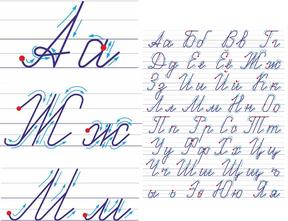 Аа
Жж
Мм
Аа Бб Вв Гг
Дд Ее Ёё Жж
Зз Ии Йй Кк
Лл Мм Нн Оо
Пп Рр Сс Тт
Уу Фф Хх Цц
Чч Шш Щщ ъ
ы ь Ээ Юю Яя